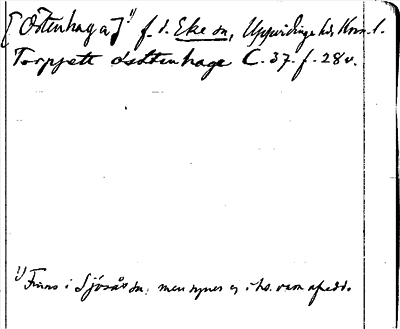 [Östenhaga]¹⁾ f. d. Eke sn, Uppvidinge hd, Kron. l.
Torpsätt Östtenhage C. 37. f. 28 v.
¹⁾ Finns i Sjösås sn. men synes ej i hs. vara